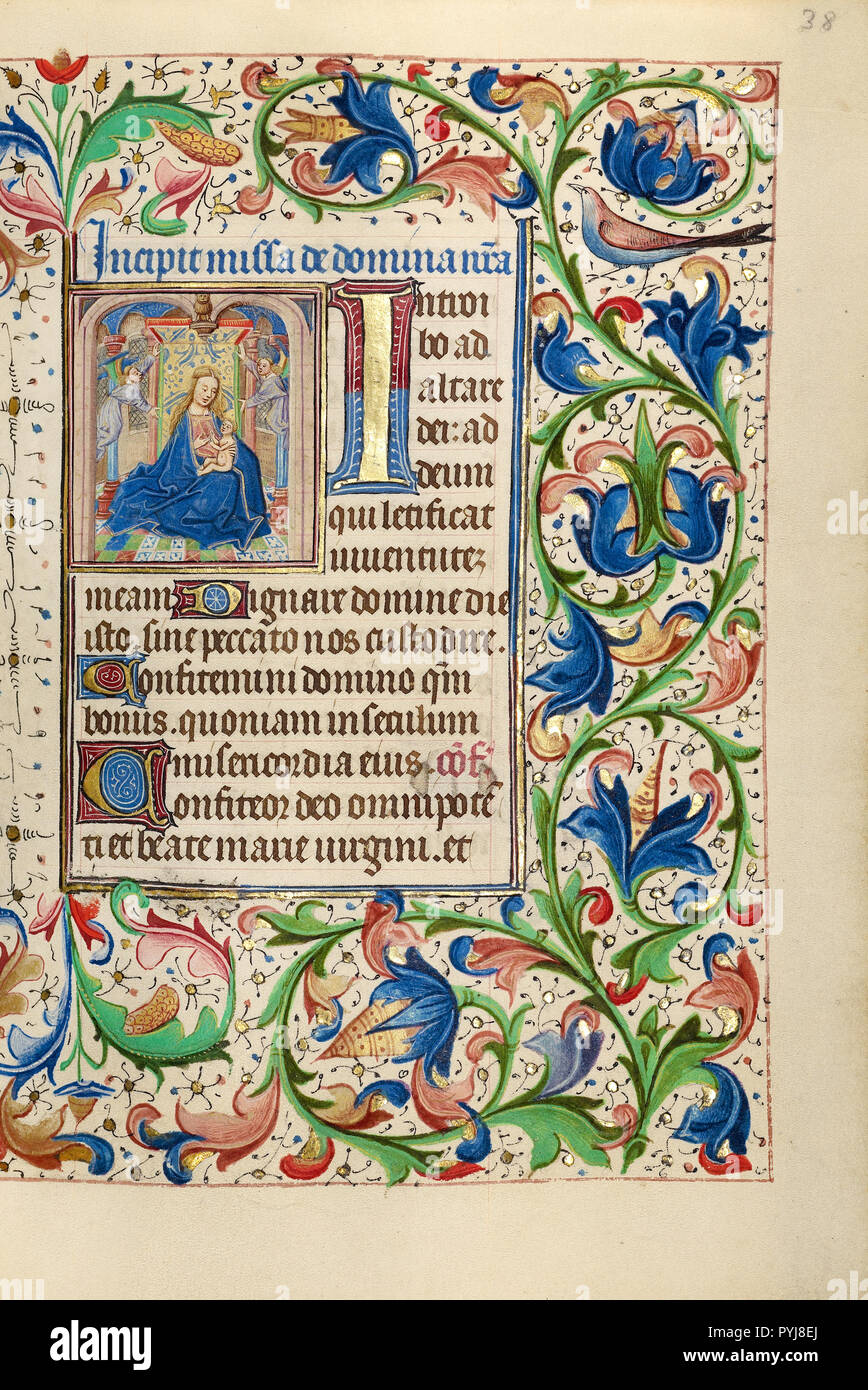 38
Incipit missa de domina nr̄a
Introi
bo ad
altare
dei: ad
deum
qui letificat
iuventutez
meam Dignare domine die
isto sine peccato nos custodire.
Confitemini domino qm̄
bonus. quoniam in seculum
misericordia eius. cōf.
Confiteor deo omnipotē
ti et beate marie virgini. et
alamy
Image ID: PYJ8EJ
www.alamy.com